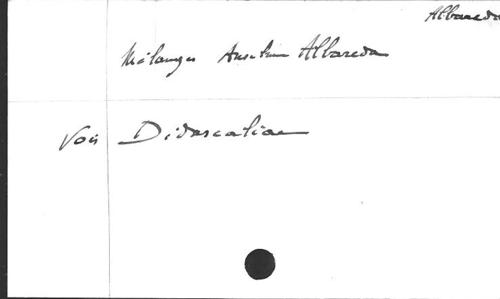 Albareda
Mélanges Anselm Albareda
Voir Didascaliae